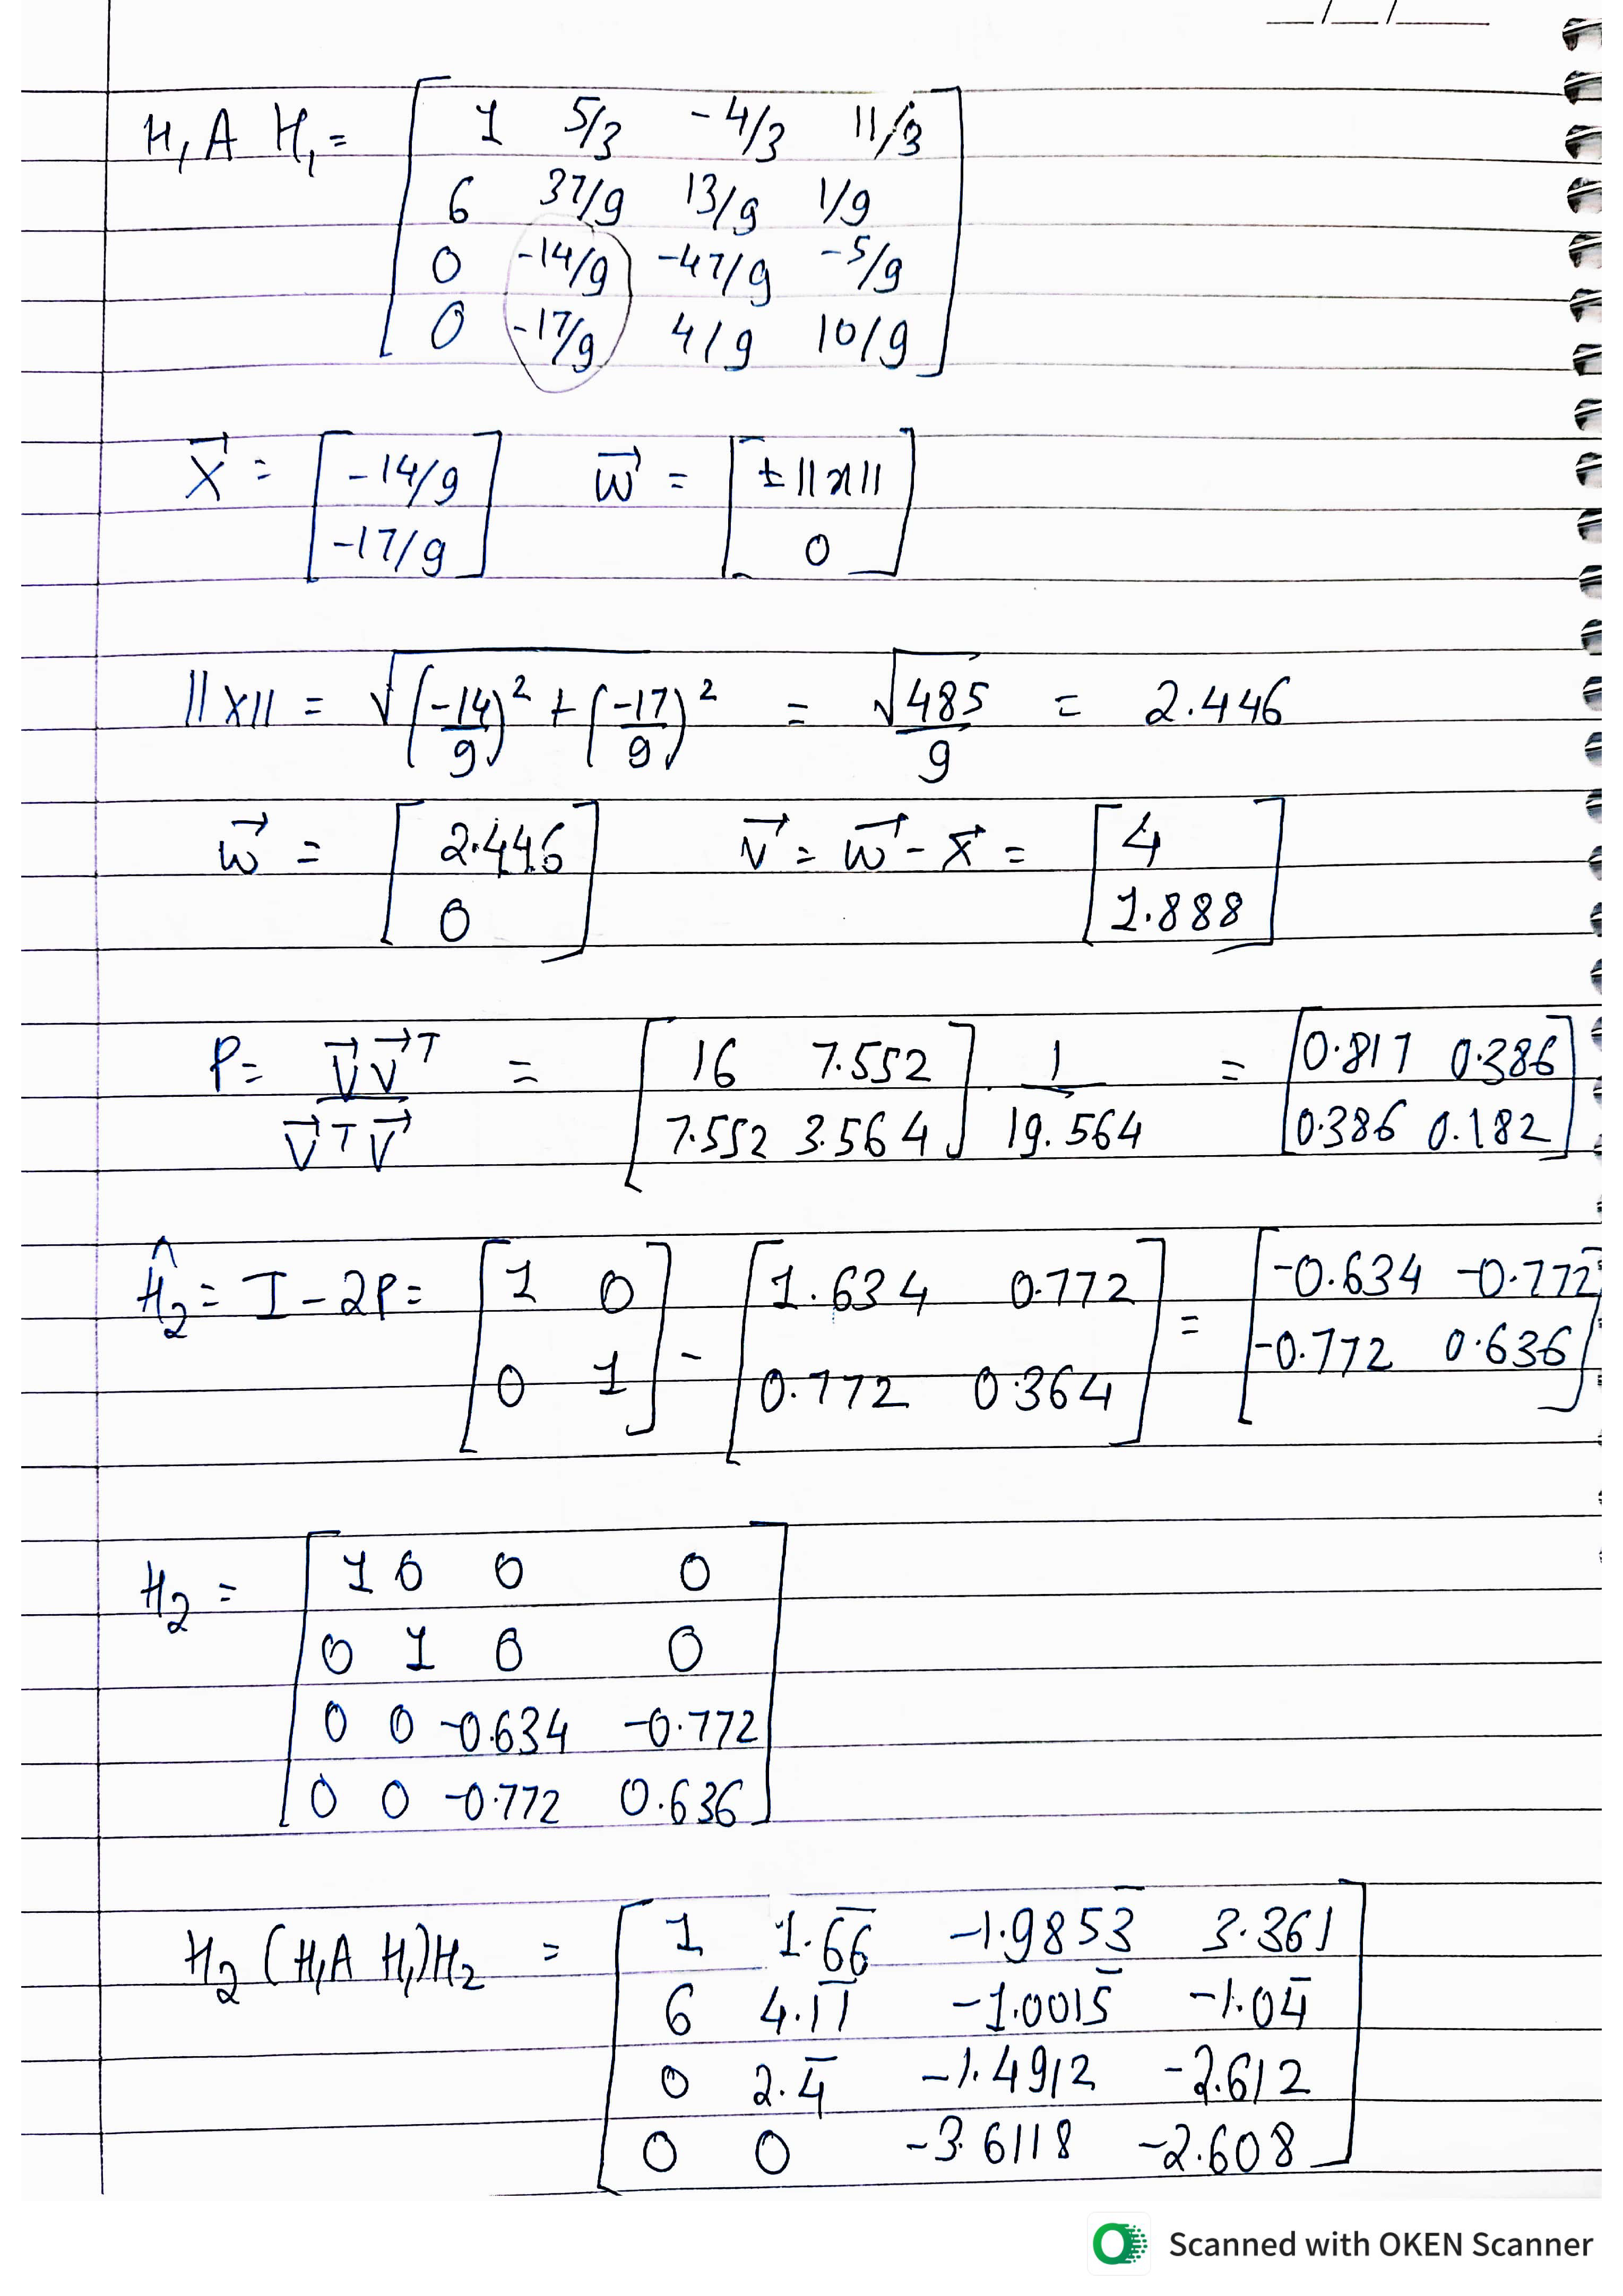 __/__/____
H₁A H₁ = [ 1 5/3 -4/3 11/3
6 37/9 13/9 1/9
0 -14/9 -47/9 -5/9
0 -17/9 4/9 10/9 ]
X⃗ = [ -14/9 -17/9 ] w⃗ = [ ±||x|| 0 ]
||x|| = √((-14/9)² + (-17/9)²) = √485/9 = 2.446
w⃗ = [ 2.446 0 ] v⃗ = w⃗ - x⃗ = [ 4 1.888 ]
P = v⃗v⃗ᵀ / v⃗ᵀv⃗ = [ 16 7.552 7.552 3.564 ] . 1/19.564 = [ 0.817 0.386 0.386 0.182 ]
Ĥ₂ = I - 2P = [ 1 0 0 1 ] - [ 1.634 0.772 0.772 0.364 ] = [ -0.634 -0.772 -0.772 0.636 ]
H₂ = [ 1 0 0 0
0 1 0 0
0 0 -0.634 -0.772
0 0 -0.772 0.636 ]
H₂ (H₁A H₁)H₂ = [ 1 1.6̅6̅ -1.9853̅ 3.361
6 4.1̅1̅ -1.0015̅ -1.04̅
0 2.4̅ -1.4912 -2.612
0 0 -3.6118 -2.608 ]
Scanned with OKEN Scanner